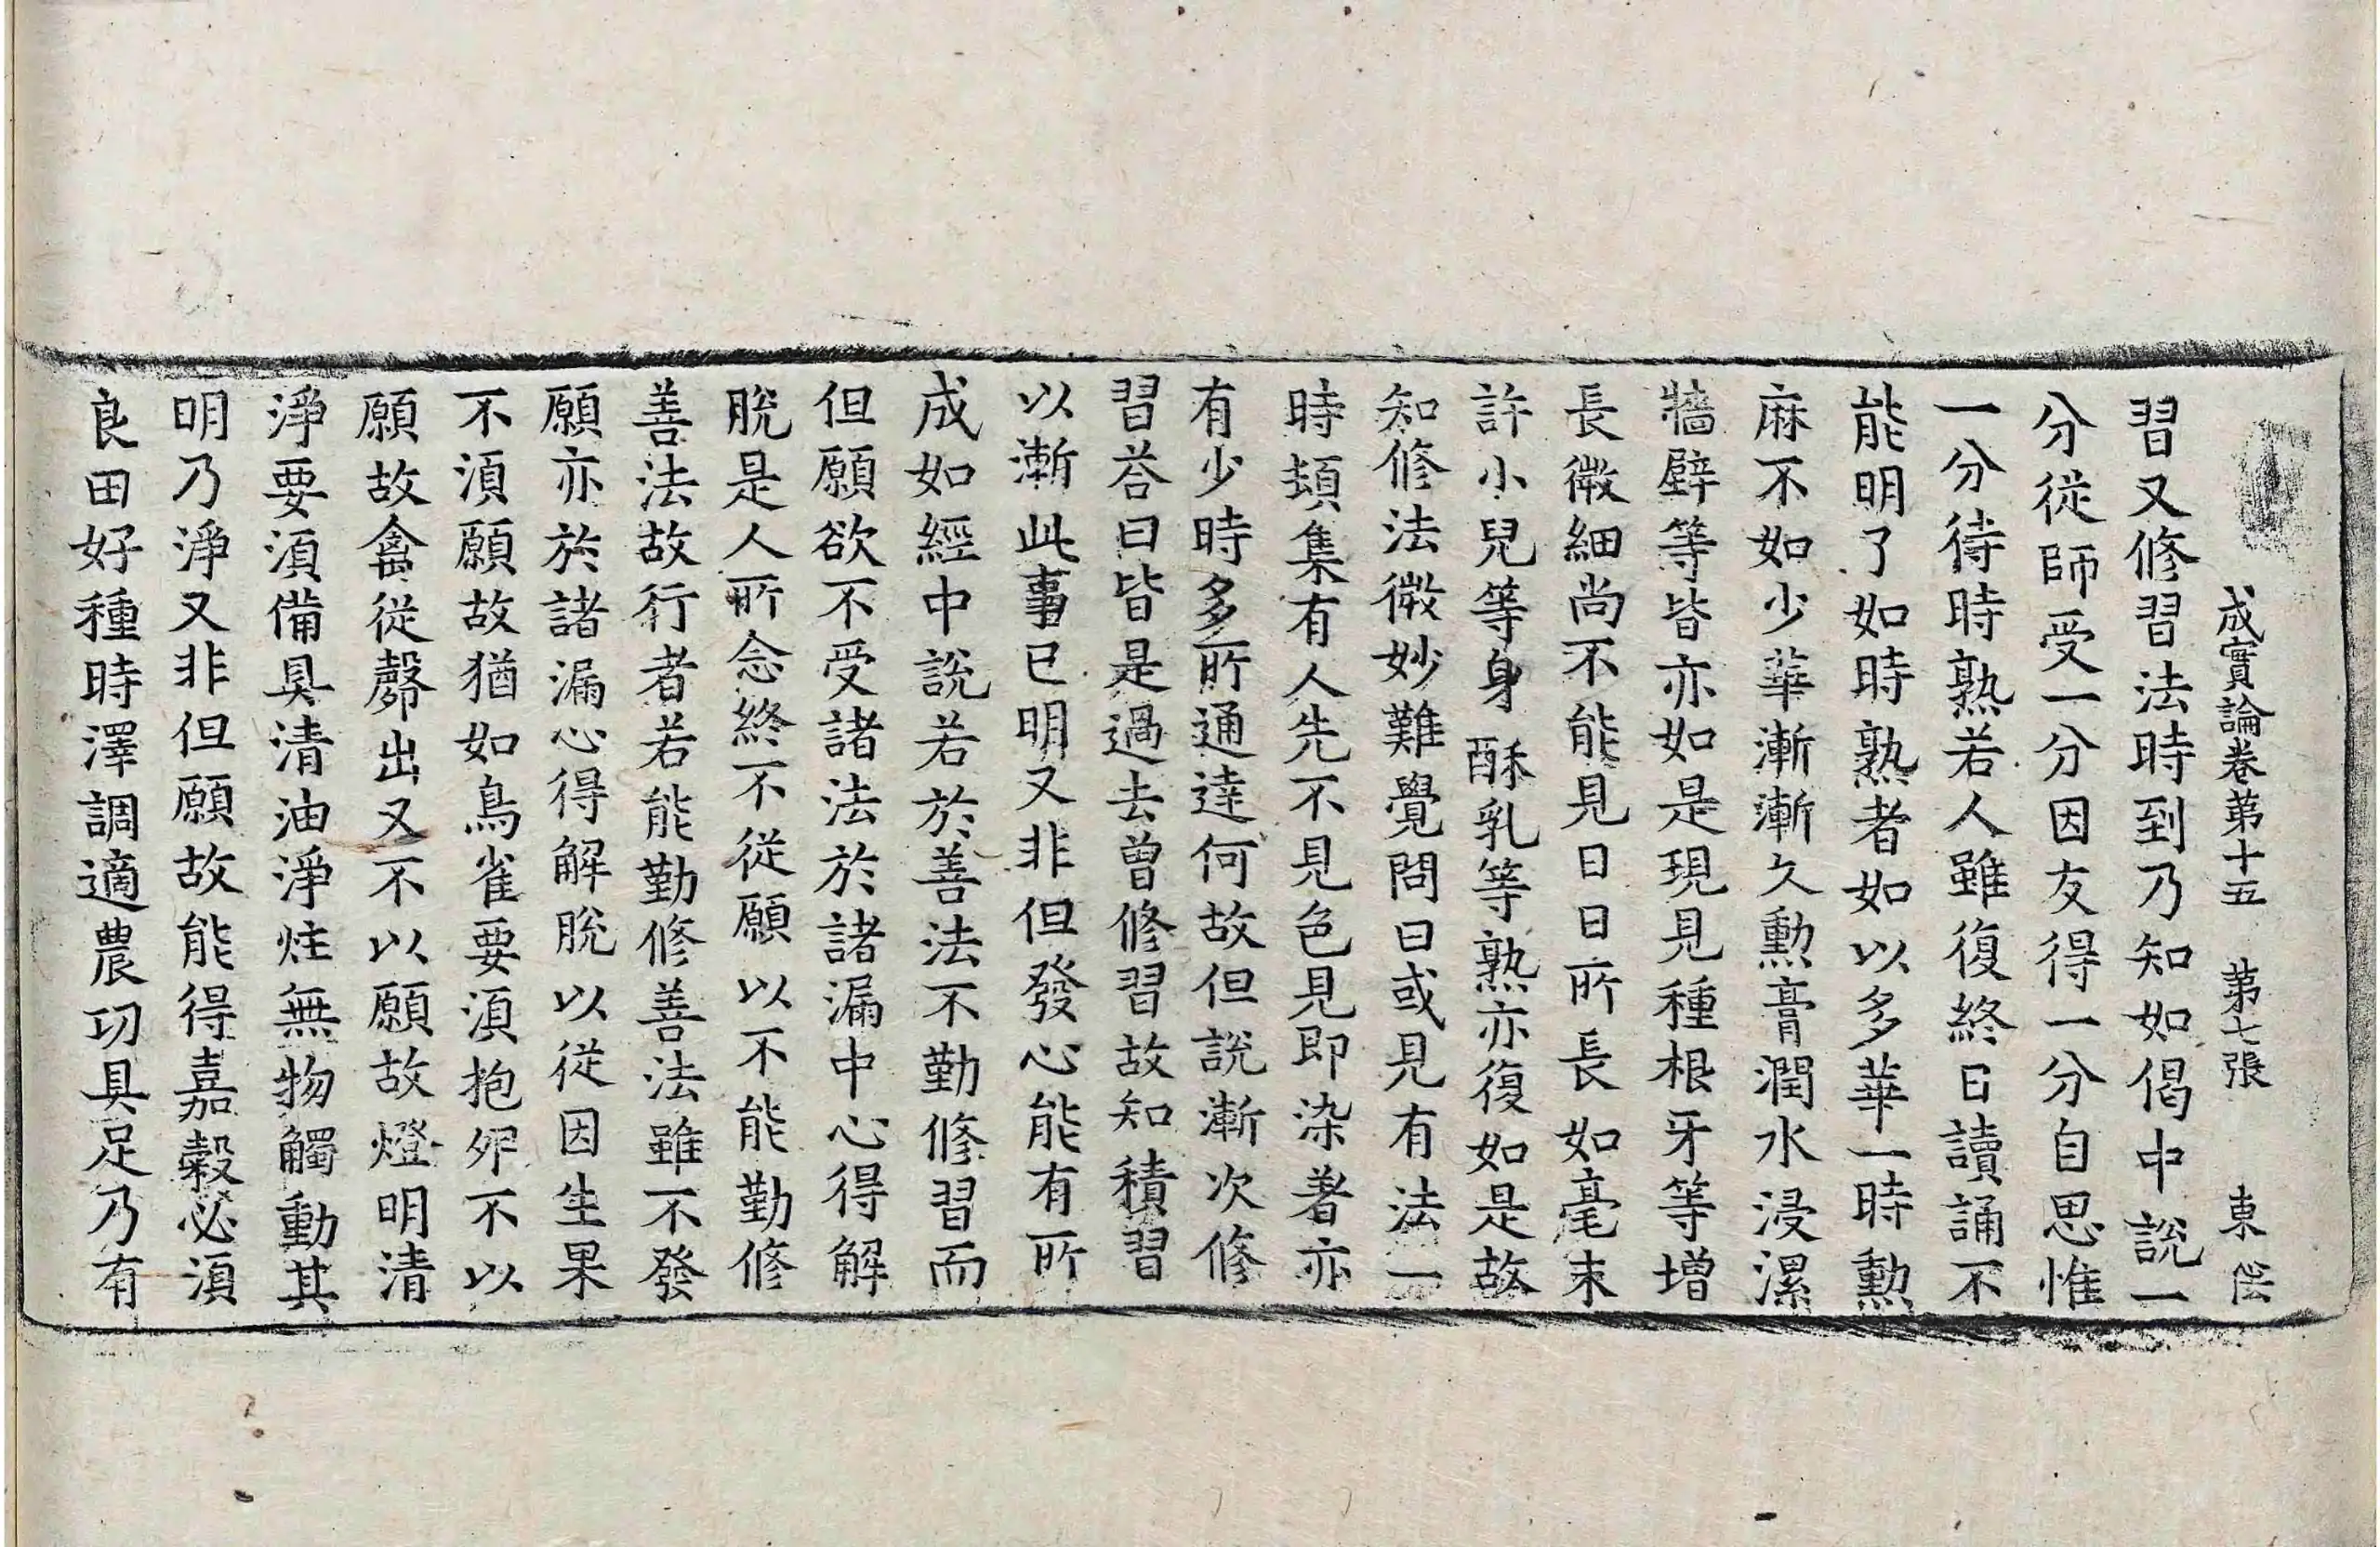 成實論卷第十五　第七張　東
習又修習法時到乃知如偈中說一
分從師受一分因友得一分自思惟
一分待時熟若人雖復終日讀誦不
能明了如時熟者如以多華一時勳
麻不如少華漸漸久勳膏潤水浸漯
牆壁等皆亦如是現見種根牙等增
長微細尚不能見日日所長如毫末
許小兒等身酥乳等熟亦復如是故
知修法微妙難覺問曰或見有法一
時頓集有人先不見色見即染著亦
有少時多所通達何故但說漸次修
習荅曰皆是過去曾修習故知積習
以漸此事已明又非但發心能有所
成如經中說若於善法不勤修習而
但願欲不受諸法於諸漏中心得解
脫是人所念終不從願以不能勤修
善法故行者若能勤修善法雖不發
願亦於諸漏心得解脫以從因生果
不湏願故猶如鳥雀要湏抱夘不以
願故禽從㲉出又不以願故燈明清
淨要湏備具清油淨炷無物觸動其
明乃淨又非但願故能得嘉穀必湏
良田好種時澤調適農功具足乃有